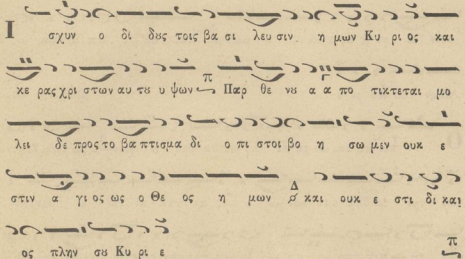 Ι σχȣν ο δι δȣς τοις βα σι λευ σιν η μων Κυ ρι ος και
κε ρας χρι στων αυ τȣ υ ψων π Παρ θε νȣ α α πο τικτεται μο
λει δε προς το βα πτισμα δι ο πι στοι βο η σω μεν ουκ ε
στιν α γι ος ως ο Θε ος η μων Δ και ουκ ε στι δι και
ος πλην σȣ Κυ ρι ε π